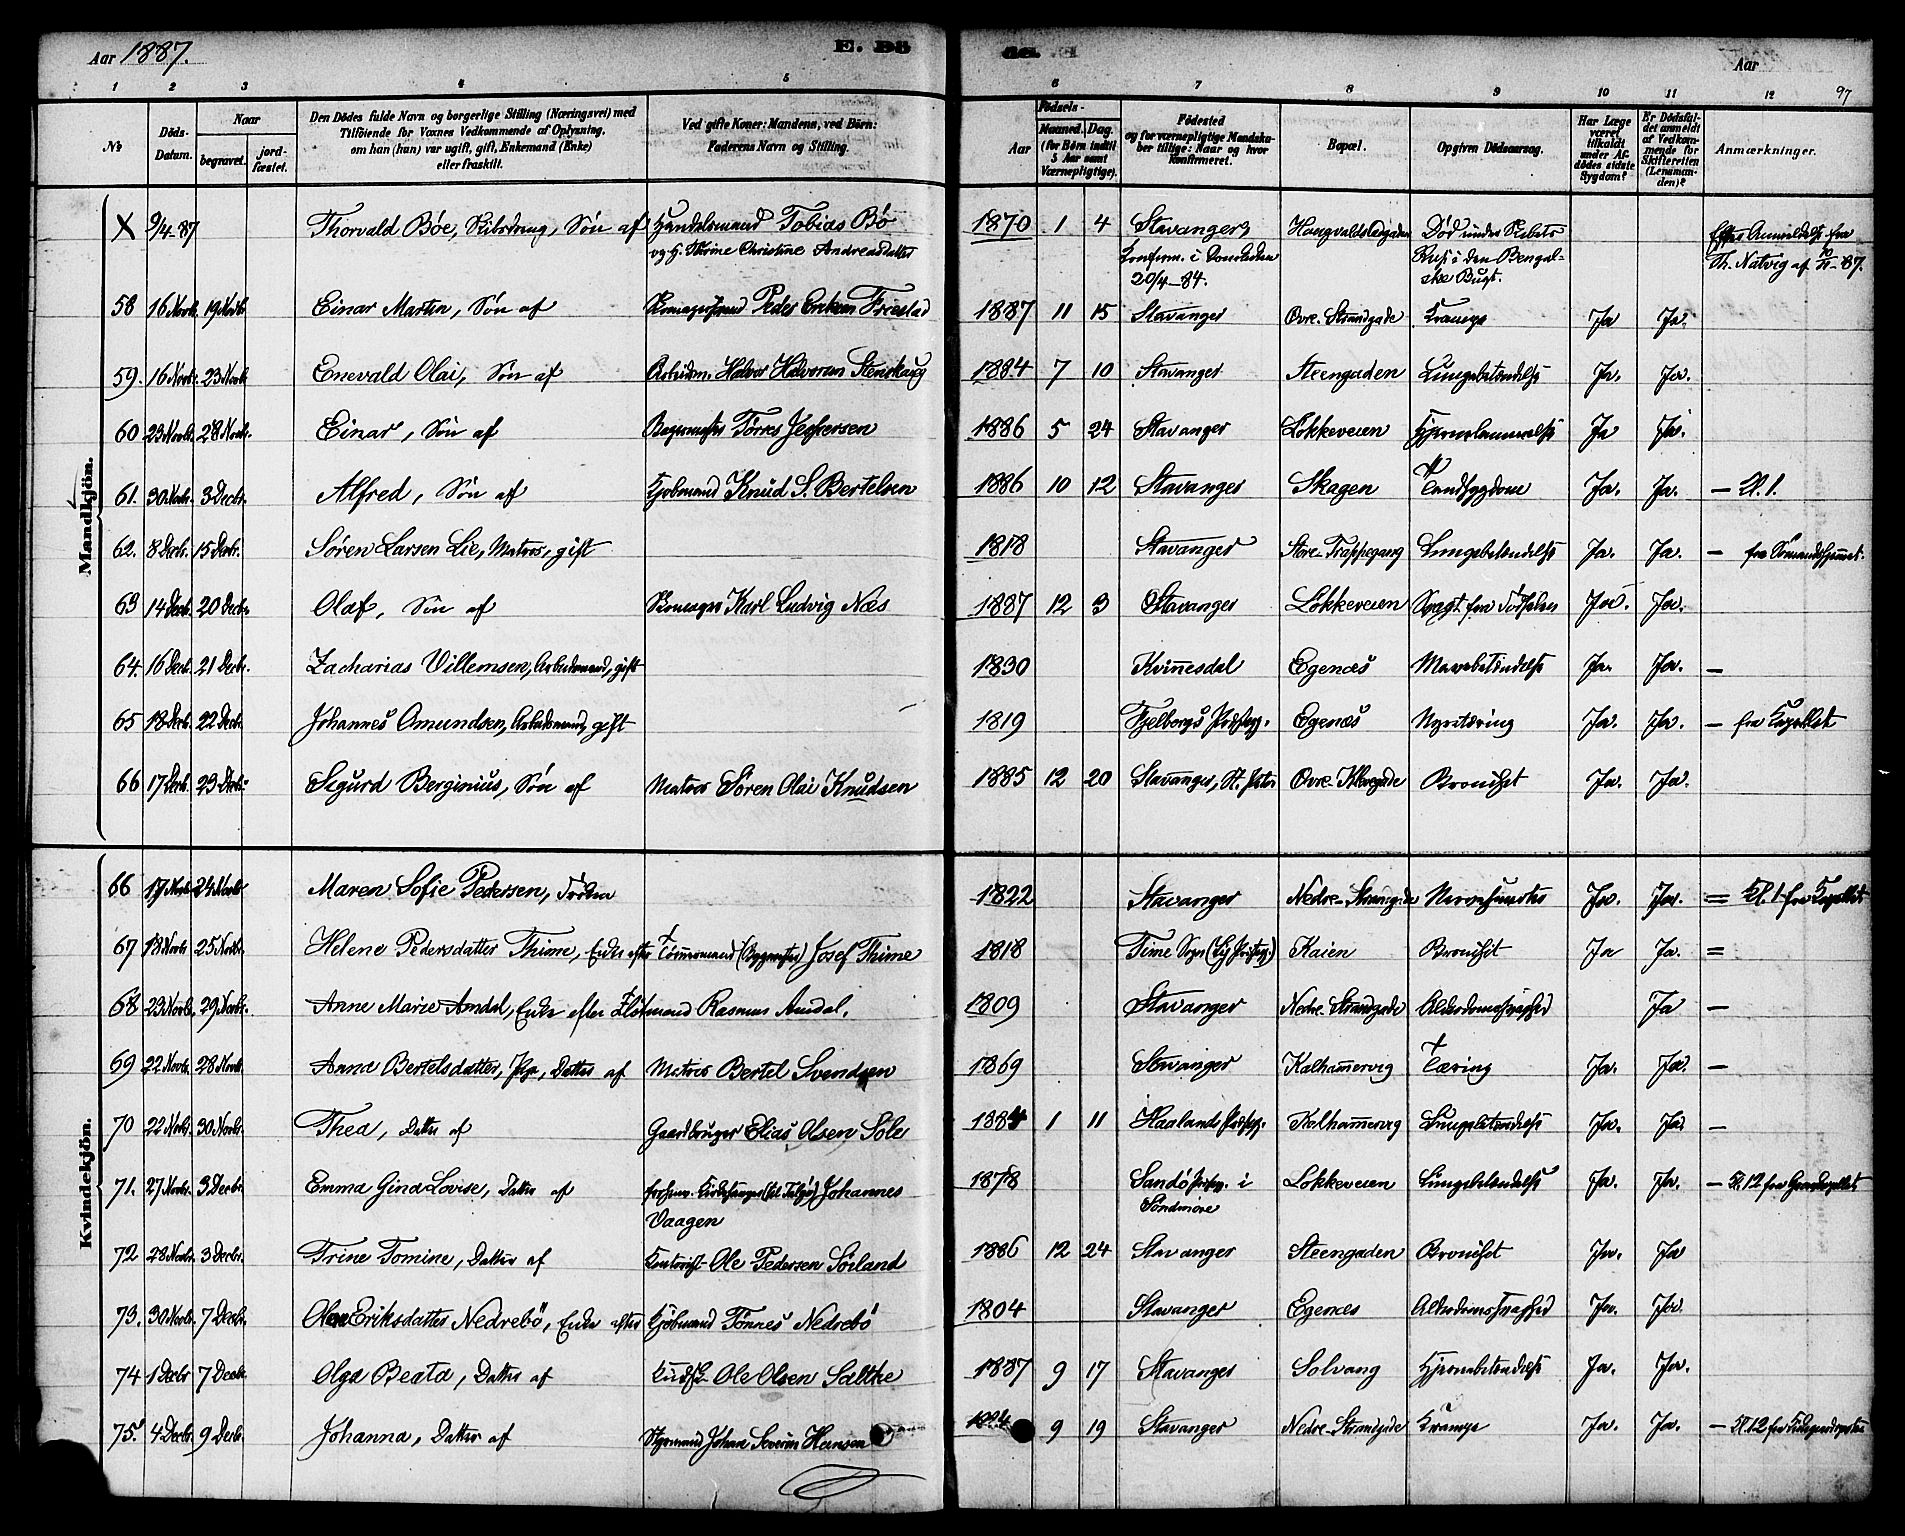 Aar 1887.
E. Dö
de. E
Aar
97
1 2 3 4 5 6 7 8 9 10 11 12
No
Döds-Datum.
Naar
begravet.
jord-fæstet.
Den Dödes fulde Navn og borgerlige Stilling (Næringsvei) med
Tilföiende for Voxnes Vedkommende af Oplysning,
om han (hun) var ugift, gift, Enkemand (Enke)
eller fraskilt.
Ved gifte Koner: Mandens, ved Börn:
Faderens Navn og Stilling.
Aar
Födsels-
Maaned. Dag.
(for Börn indtil
5 Aar samt
Værnepligtige).
Födested
og for værnepligtige Mandska-
ber tillige: Naar og hvor
konfirmeret.
Bopæl.
Opgiven Dödsaarsag.
Har Læge
været
tilkaldt
under Af-
dödes sidste
Sygdom?
Er Dödsfal-
det anmeldt
af Vedkom-
mende for
Skifteretten
(Lensman-
den)?
Anmærkninger.
Mandkjön.
X 9/4-87 Thorvald Böe, Skibsdreng, Søn af Handelsmand Tobias Bö 1870 1 4 Stavanger, Død under Skibets Efter Anmeldelse fra
og H. Thrine Christine Andreasdatter Konfirm. i Domkirken Reise i den Bengal- Th. Natvig af 10/11-87.
20/4-84. ske Bugt.
58 16 Novbr. 19 Novbr. Einar Martin, Søn af Peder Eriksen Frestad 1887 11 15 Stavanger Øvre-Strandgade Krampe Ja Ja.
59. 16 Novbr. 23 Novbr. Enevald Olai, Søn af Arbeidsm. Halvor Halvorsen 1884 7 10 Stavanger Steengaden Lungebetændelse Ja. Ja.
60 23 Novbr. 28 Novbr. Einar, Søn af Bagermester Tørres Jespersen 1886 5 24 Stavanger Løkkeveien Hjernelammelse Ja Ja.
61. 30 Novbr. 3 Decbr. Alfred, Søn af Kjøbmand Knud S. Bertelsen 1886 10 12 Stavanger Skagen Tandsygdom Ja. Ja. — Kl. 1.
62. 8 Decbr. 15 Decbr. Søren Larsen Lie, Matros, gift 1818 Stavanger Store-Trappegang Lungebetændelse Ja. Ja. — fra Sømandshjemmet.
63 14 Decbr. 20 Decbr. Olaf, Søn af Skomager Karl Ludvig Næs 1887 12 3 Stavanger Løkkeveien Svagt fra Fødselen Ja. Ja.
64. 16 Decbr. 21 Decbr. Zacharias Villemsen, Arbeidsmand, gift 1830 Kvinesdal Egenæs Mavebetændelse Ja. Ja. —
65 18 Decbr. 22 Decbr. Johannes Amundsen, Arbeidsmand, gift 1819 Fjelbergs Præstegj. Egenæs Nyretæring Ja. Ja. — fra Kapellet
66 17 Decbr. 23 Decbr. Sigurd Berginius, Søn af Matros Søren Olai Knudsen 1885 12 20 Stavanger, St. Petri Øvre-Klevegade Bronchit Ja. Ja.
Kvindekjön.
66 17 Novbr. 24 Novbr. Maren Sofie Pedersen, Frøken 1822 Stavanger Nedre-Strandgade Ja. Ja. = Kl. 1 fra Kapellet
67 18 Novbr. 25 Novbr. Helene Pedersdatter Thime, Enke efter Tømmermand (Bygmester) Josef Thime 1818 Time Sogn (Lye Præstegj.) Kaien Bronchit Ja Ja. =
68 23 Novbr. 29 Novbr. Anne Marie Amdal, Enke efter Rasmus Amdal. 1809 Stavanger Nedre-Strandgade Alderdomssvaghed Ja —
69 22 Novbr. 28 Novbr. Anna Bertelsdatter, Pige, Datter af Matros Bertel Svendsen 1869 Stavanger Kalhammervig Tæring Ja. Ja. —
70 22 Novbr. 30 Novbr. Thea, Datter af Gaardbruger Elias Olsen Sole 1884 1 11 Haaland Præstegj. Kalhammervig Lungebetændelse Ja. Ja. —
71. 27 Novbr. 3 Decbr. Emma Gina Lovise, Datter af Kirkesanger Johannes 1878 Sandø Præstegj. i Løkkeveien Lungebetændelse Ja. Ja. — Kl. 12 fra Gravkapellet
Vaagen Søndmøre
72 28 Novbr. 3 Decbr. Trine Tomine, Datter af Ole Pedersen Sørland 1886 12 24 Stavanger Steengaden Bronchit Ja. Ja
73. 30 Novbr. 7 Decbr. Olene Eriksdatter Nedrebö, Enke efter Kjøbmand Tönnes Nedrebö 1804 Stavanger Egenes Alderdomssvaghed Ja. Ja.
74 1 Decbr 7 Decbr. Olga Beata, Datter af Ole Olsen Salthe 1887 9 17 Stavanger Solvang Hjernebetændelse Ja. Ja.
75. 4 Decbr 9 Decbr. Johanna, Datter af Styrmand Johan Severin Hansen 9 19 Stavanger Nedre-Strandgade Krampe Ja. Ja. — Kl. 12 fra